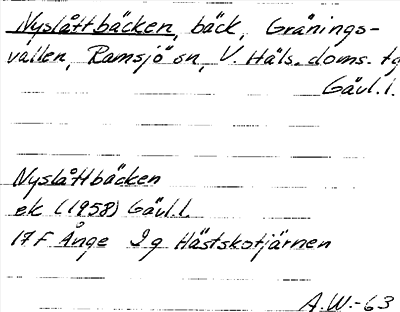 Nyslåttbäcken, bäck, Grånings-
vallen, Ramsjö sn, V. Häls. doms. tg
Gävl. l.
Nyslåttbäcken
ek (1958) Gävl. l.
17F Ånge 2g Hästskotjärnen
A.W.-63